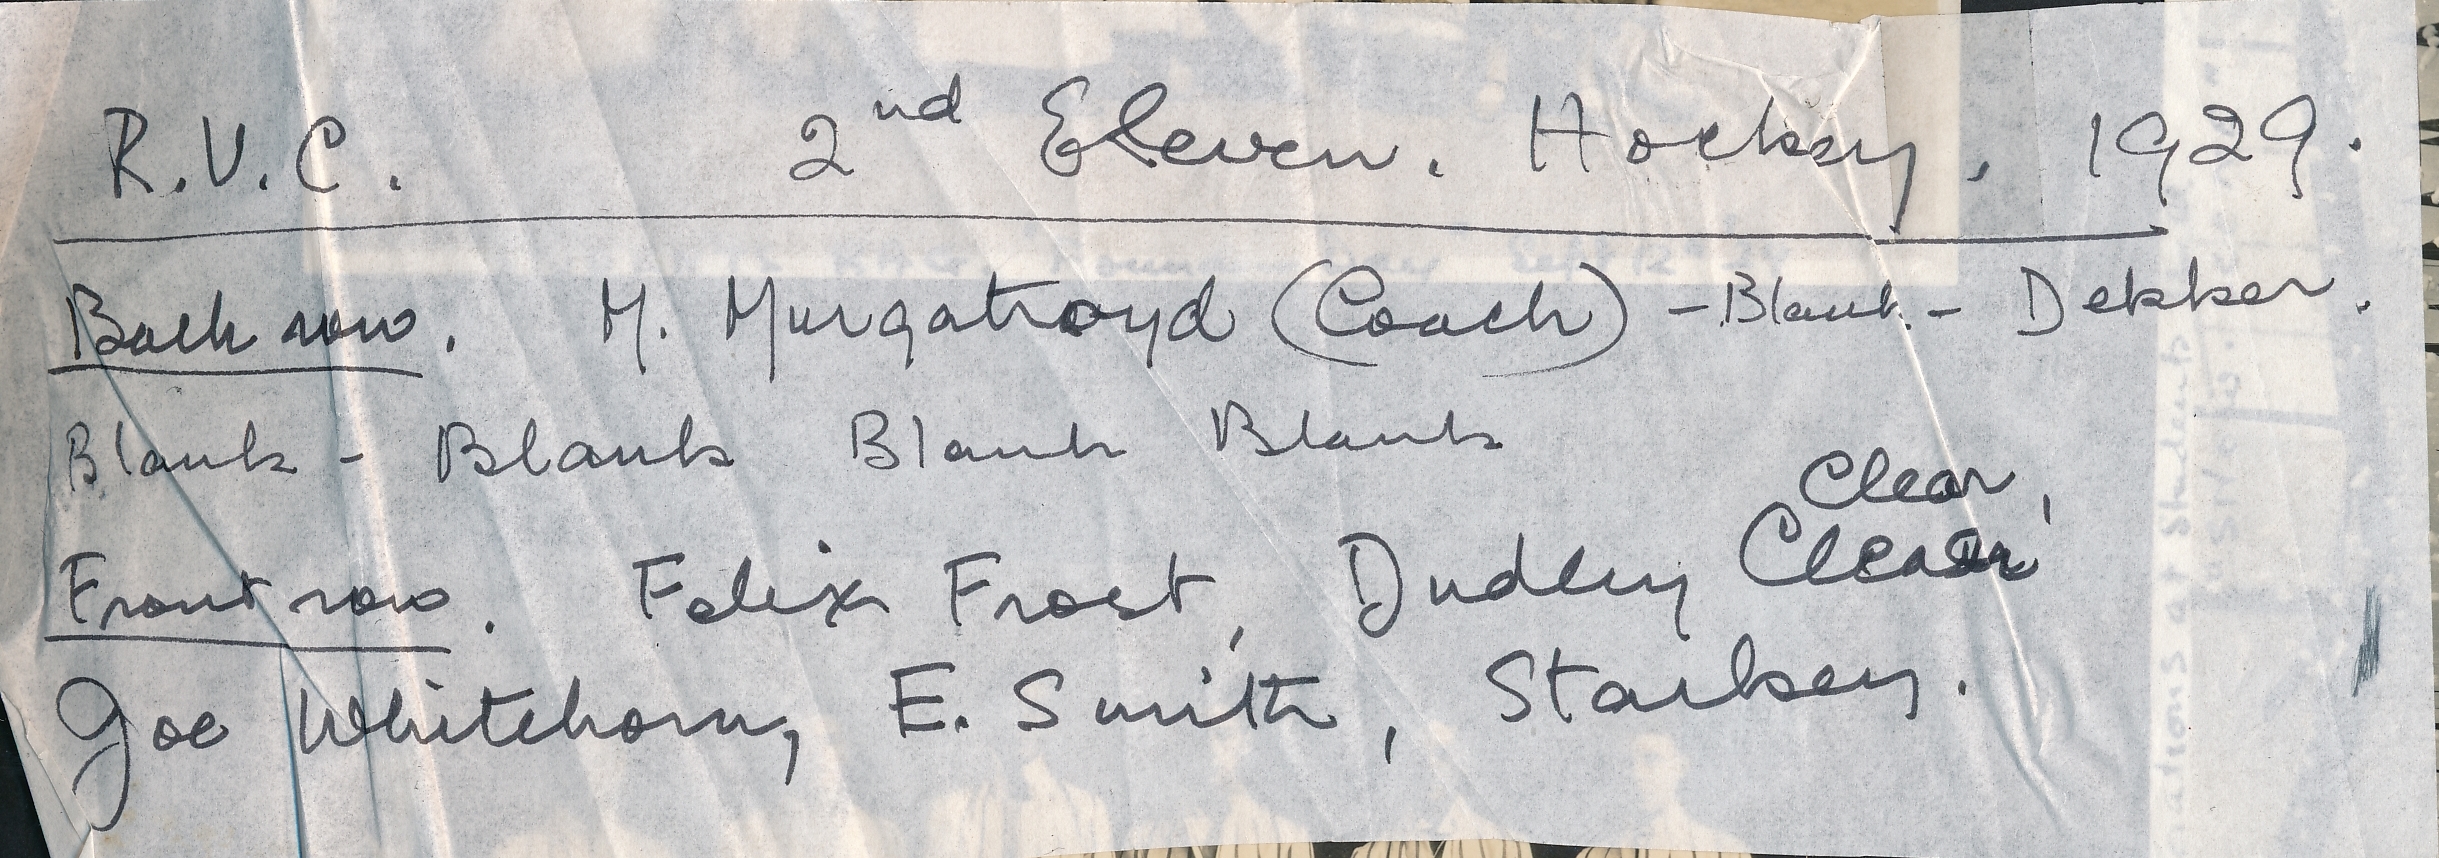 R.V.C. 2nd Eleven. Hockey. 1929.
Back row. M. Murgatroyd (Coach) - Blank - Dekker.
Blank - Blank Blank Blank
Clear,
Front row. Felix Frost, Dudley Clear
Joe Whitehorn, E. Smith, Starkey.